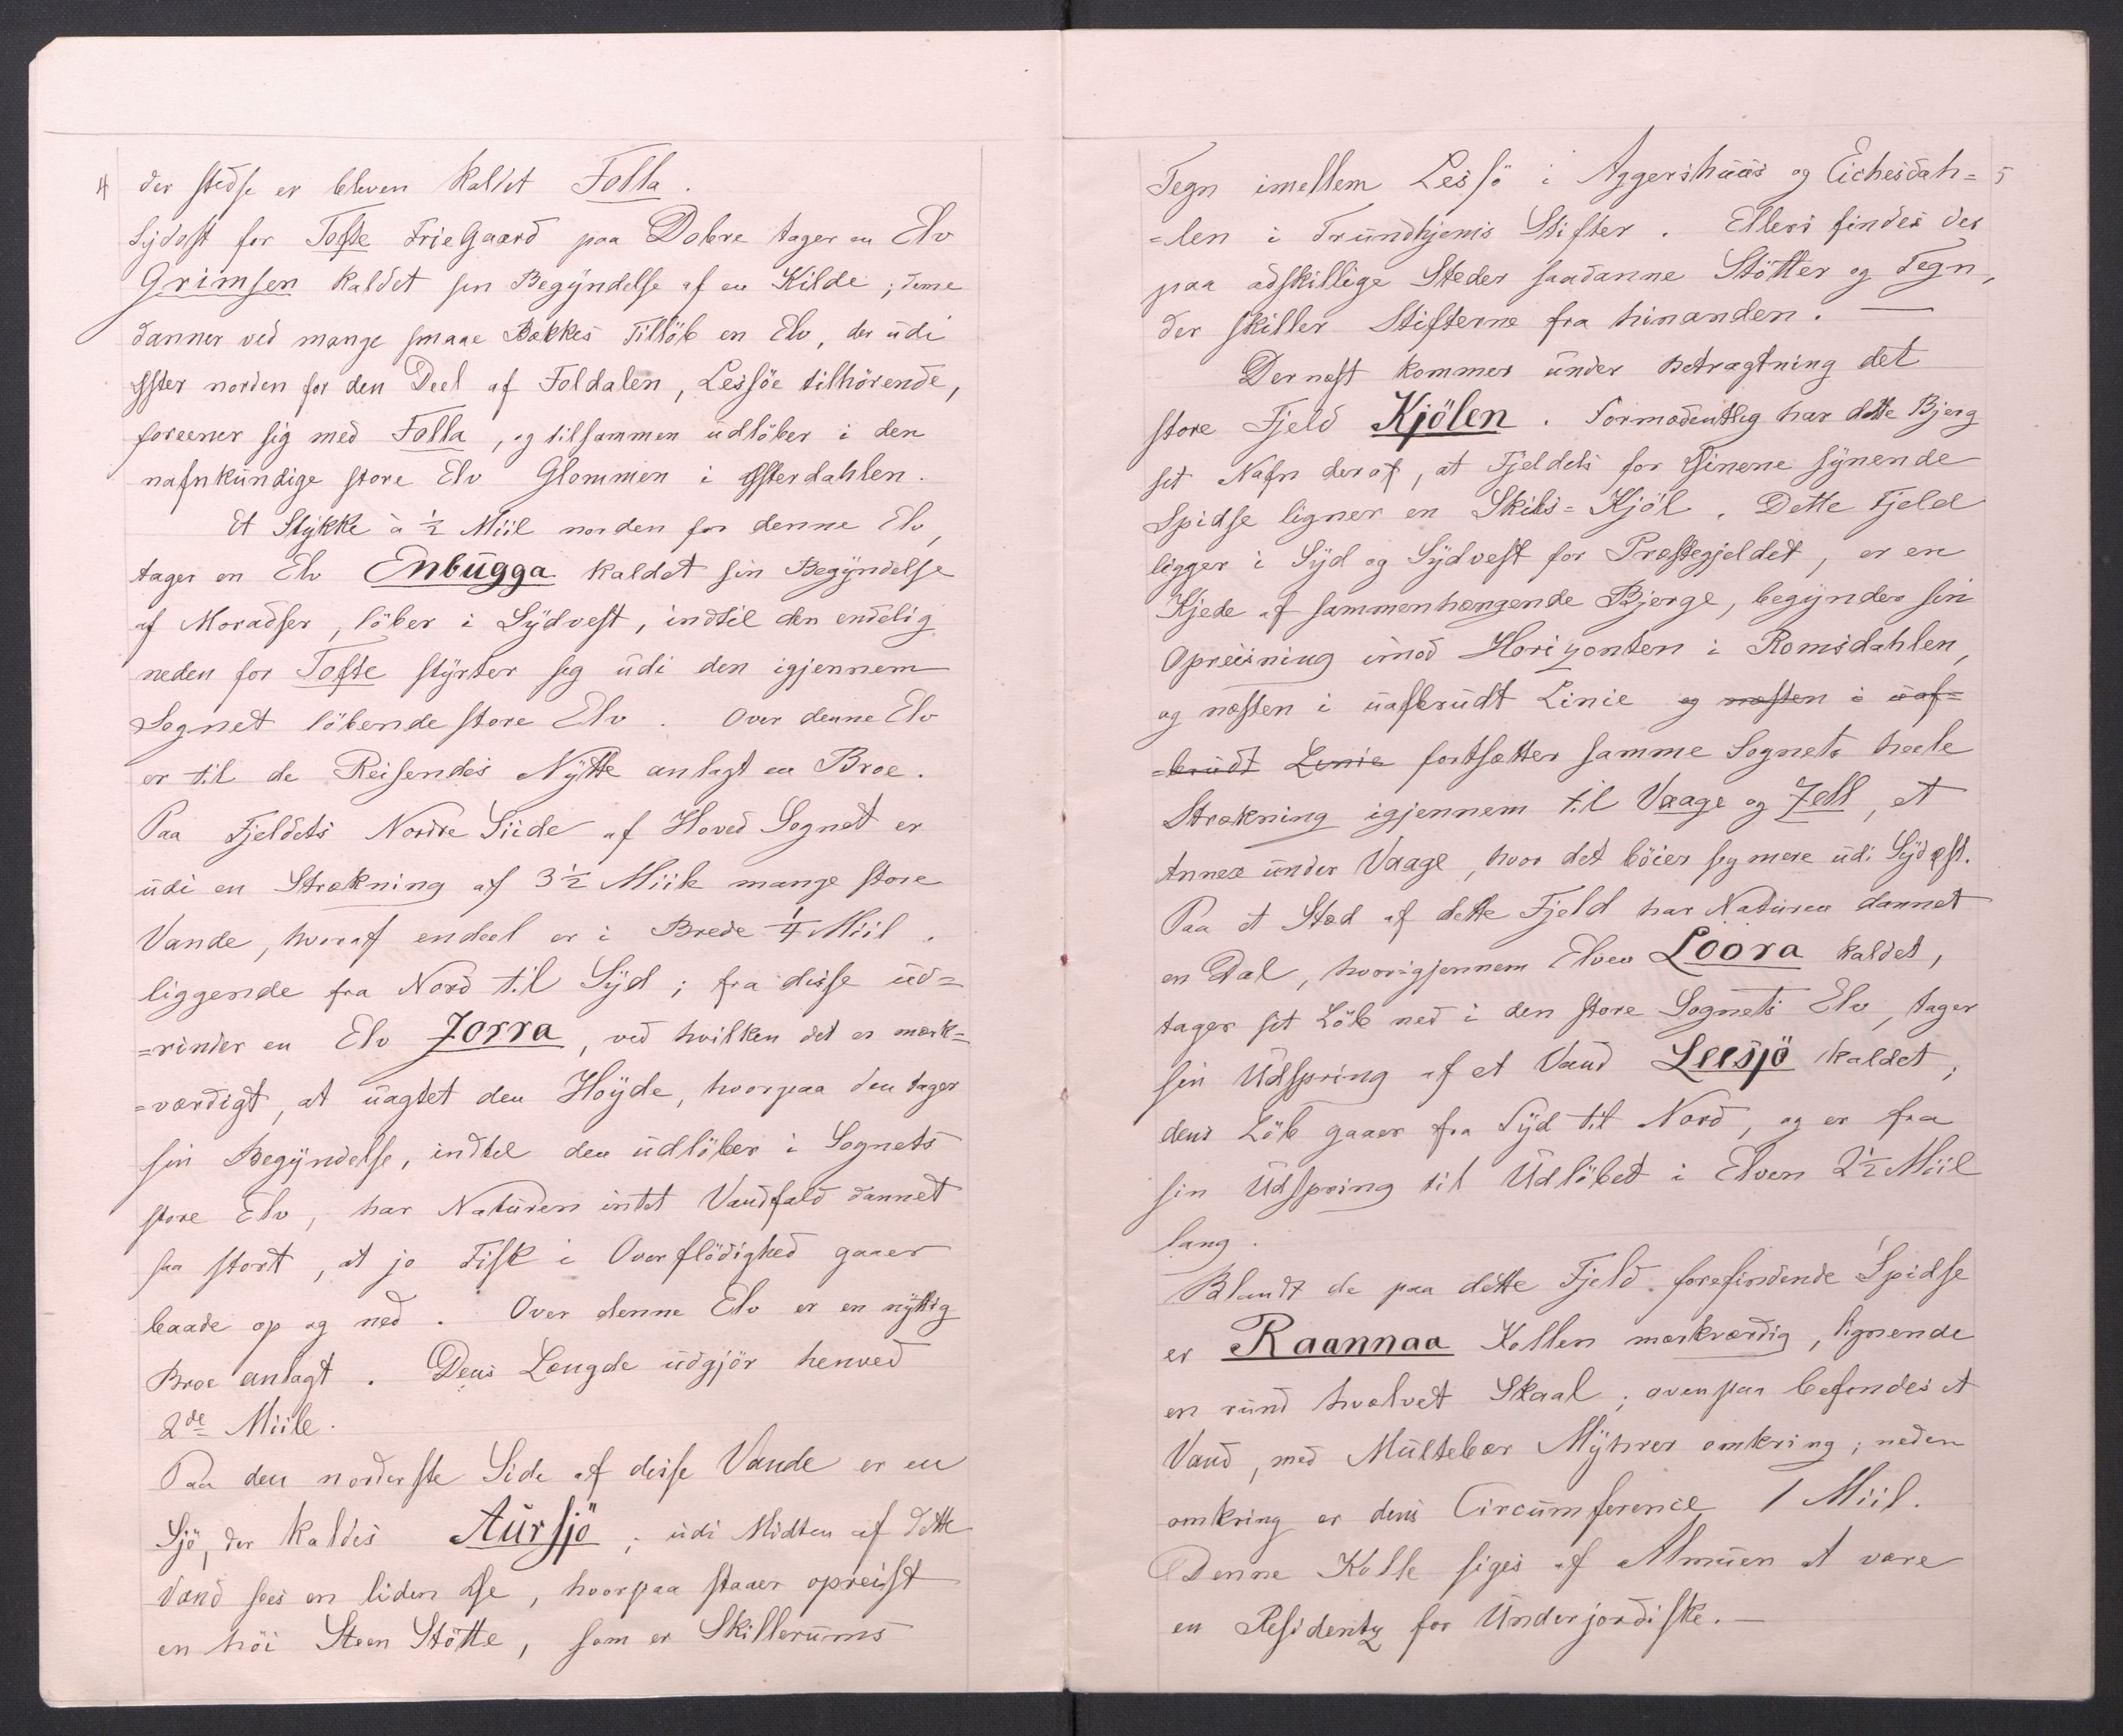 4
der stedse er bleven kaldet Folla.
Sydost for Tofte FrieGaard paa Dobre tager en Elv
Grimsen kaldet sin Begyndelse af en Kilde; denne
danner ved mange smaae Bækkes Tillöb en Elv, der udi
Öster norden for den Deel af Foldalen, Lessöe tilhörende,
foreener sig med Folla, og tilsammen udlöber i den
nafnkundige store Elv Glommen i Österdahlen.
Et Stykke à ½ Miil norden for denne Elv,
tager en Elv Enbugga kaldet sin Begyndelse
af Moradser, löber i Sydvest, indtil den endelig
neden for Tofte styrter sig udi den igjennem
Sognet löbende store Elv. Over denne Elv
er til de Reisendes Nytte anlagt en Broe.
Paa Fjeldets Nordre Siide af Hoved Sognet er
udi en Strækning af 3½ Miile mange store
Vande, hvoraf endeel er i Brede ¼ Miil.
liggende fra Nord til Syd; fra disse ud=
=rinder en Elv Jorra, ved hvilken det er mærk=
=værdigt, at uagtet den Höyde, hvorpaa den tager
sin Begyndelse, indtil den udlöber i Sognets
store Elv, har Naturen intet Vandfald dannet
saa stort, at jo Fisk i Overflödighed gaaer
baade op og ned. Over denne Elv er en nyttig
Broe anlagt. Dens Længde udgjör henved
2de Miile.
Paa den norderste Side af disse Vande er en
Sjö, der kaldes Aursjö; udi Midten af dette
Vand sees en liden Öe, hvorpaa staaer opreist
en höi Steen Stötte, som er Skillerums
5
Tegn imellem Lessö i Aggershuus og Eichesdah=
=len i Trundhjems Stifter. Ellers findes der
paa adskillige Steder saadanne Stötter og Tegn,
der skiller Stifterne fra hinanden. —
Dernæst kommer under Betragtning det
store Fjeld Kjölen. Formodentlig har dette Bjerg
sit Nafn deraf, at Fjeldets for Öinene synende
Spidse ligner en Skibs=Kjöl. Dette Fjeld
ligger i Syd og Sydvest for Præstegjeldet, er en
Kjede af sammenhængende Bjerge, begynder sin
Opreisning imod Horizonten i Romsdahlen,
og næsten i uafbrudt Linie og næsten i uaf=
=brudt Linie fortsætter samme Sognets heele
Strækning igjennem til Vaage og Jell, et
Annex under Vaage, hvor det böier sig mere udi Sydöst.
Paa et Stæd af dette Fjeld har Naturen dannet
en Dal, hvorigjennem Elven Loora kaldet,
tager sit Löb ned i den store Sognets Elv, tager
sin Udspring af et Vand Leesjö kaldet,
dens Löb gaaer fra Syd til Nord, og er fra
sin Udspring til Udlöbet i Elven 2½ Miil
lang.
Blandt de paa dette Fjeld forefindende Spidse
er Raannaa Kollen mærkværdig, lignende
en rund hvælvet Skaal; ovenpaa befindes et
Vand, med Multebær Myhrer omkring; neden
omkring er dens Circumference 1 Miil.
Denne Kolle siges af Almuen at være
en Residentz for Underjordiske. —